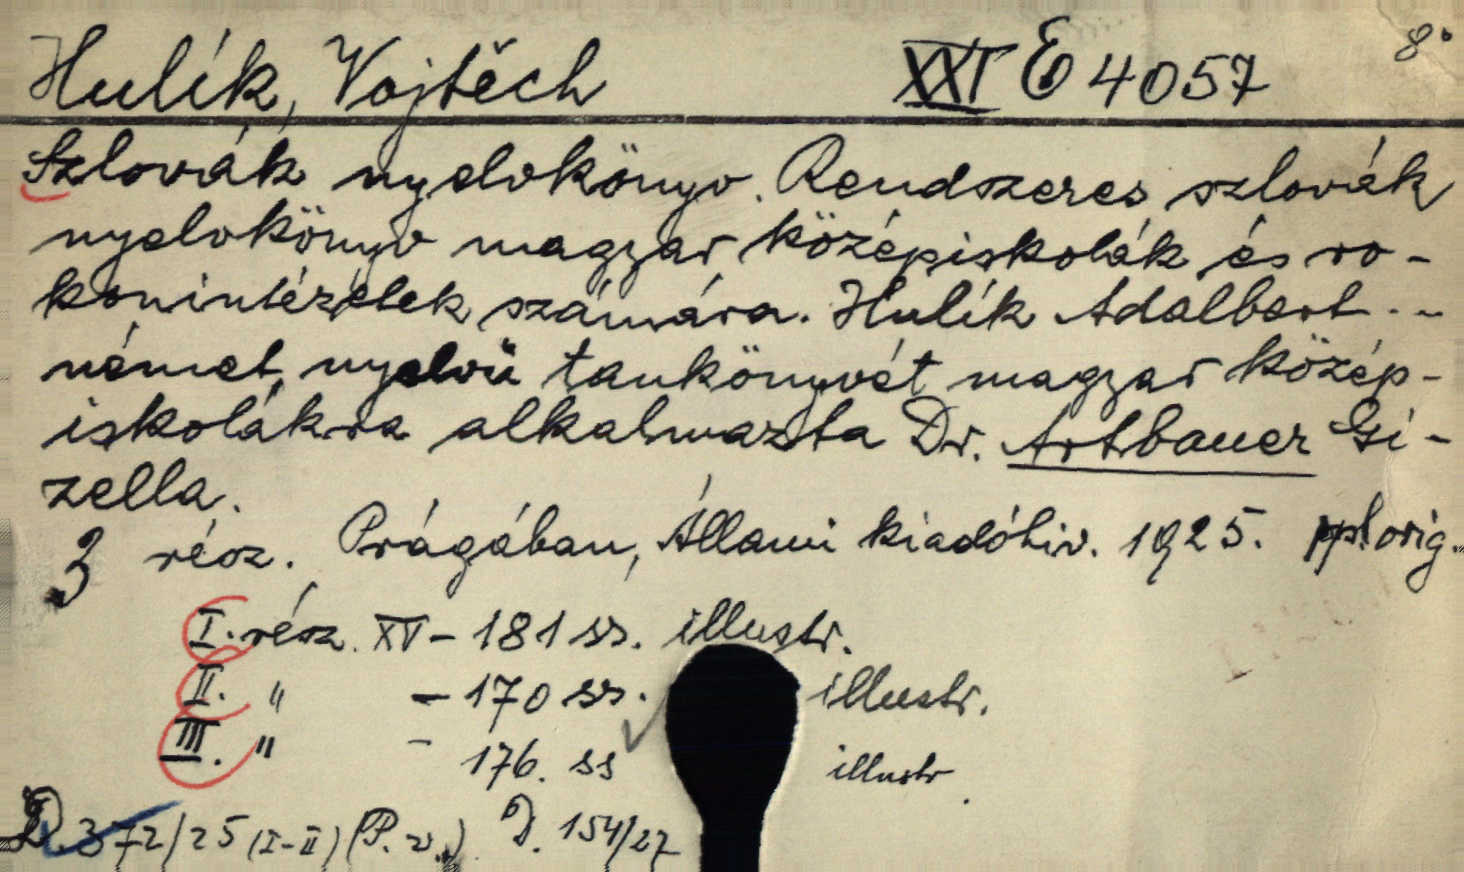 8°
Hulík, Vojtěch XXI E 4057
Szlovák nyelvkönyv. Rendszeres szlovák
nyelvkönyv magyar középiskolák és ro-
konintézetek számára. Hulík Adalbert..
német nyelvü tankönyvét magyar közép-
iskolákra alkalmazta Dr. Artbauer Gi-
zella.
3 rész. Prágában, Állami kiadóhiv. 1925. ppl orig.
I. rész. XV-181 ss. illustr.
II. " -170 ss. illustr.
III. " - 176. ss illustr.
D. 372/25 (I-II) (P. v.) D. 154/27